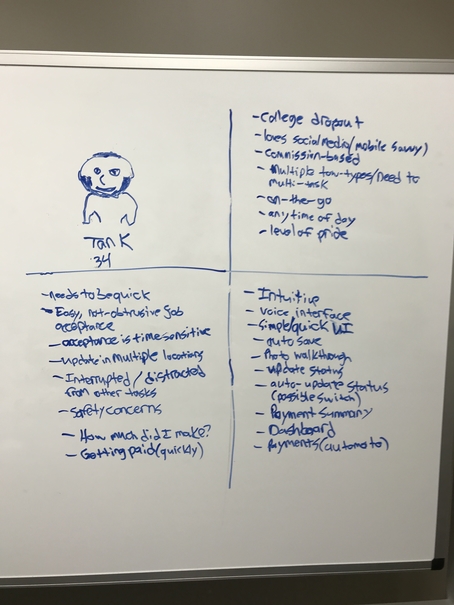 Tank
34
- College dropout
- loves social media/mobile savvy)
- Commission-based
- Multiple tow-types/need to
multi-task
- on-the-go
- any time of day
- level of pride
- needs to be quick
- Easy, not-obtrusive job
acceptance
- acceptance is time sensitive
- update in multiple locations
- Interrupted/distracted
from other tasks
- Safety concerns
- How much did I make?
- Getting paid (quickly)
- Intuitive
- voice interface
- simple/quick UI
- auto save
- Photo walkthrough
- update status
- auto-update status
(possible switch)
- Payment Summary
- Dashboard
- Payments (automate)